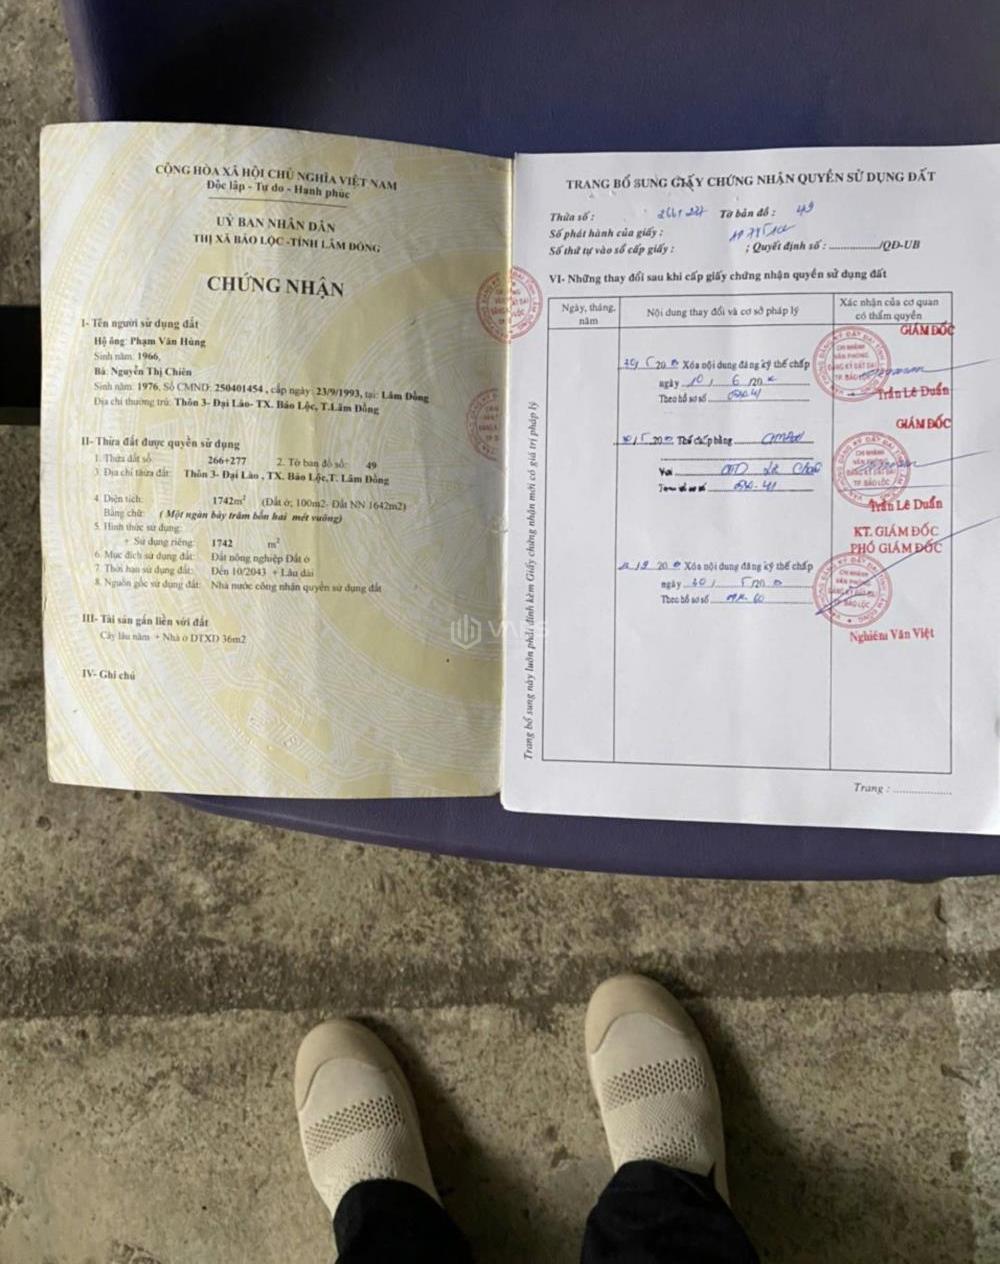 CỘNG HÒA XÃ HỘI CHỦ NGHĨA VIỆT NAM
Độc lập - Tự do - Hạnh phúc
UỶ BAN NHÂN DÂN
THỊ XÃ BẢO LỘC -TỈNH LÂM ĐỒNG
CHỨNG NHẬN
I- Tên người sử dụng đất
Hộ ông: Phạm Văn Hùng
Sinh năm: 1966,
Bà: Nguyễn Thị Chiên
Sinh năm: 1976, Số CMND: 250401454 , cấp ngày: 23/9/1993, tại: Lâm Đồng
Địa chỉ thường trú: Thôn 3- Đại Lào- TX. Bảo Lộc, T.Lâm Đồng
II- Thửa đất được quyền sử dụng
1. Thửa đất số: 266+277 2. Tờ bản đồ số: 49
3. Địa chỉ thửa đất: Thôn 3- Đại Lào , TX. Bảo Lộc,T. Lâm Đồng
4. Diện tích: 1742m² (Đất ở; 100m2- Đất NN 1642m2)
Bằng chữ: ( Một ngàn bảy trăm bốn hai mét vuông)
5. Hình thức sử dụng:
+ Sử dụng riêng: 1742 m²
6. Mục đích sử dụng đất: Đất nông nghiệp Đất ở
7. Thời hạn sử dụng đất: Đến 10/2043 + Lâu dài
8. Nguồn gốc sử dụng đất: Nhà nước công nhận quyền sử dụng đất
III- Tài sản gắn liền với đất
Cây lâu năm + Nhà ở DTXD 36m2
IV- Ghi chú
TRANG BỔ SUNG GIẤY CHỨNG NHẬN QUYỀN SỬ DỤNG ĐẤT
Thửa số : Tờ bản đồ : 49
Số phát hành của giấy :
Số thứ tự vào sổ cấp giấy : ; Quyết định số : ................/QĐ-UB
VI- Những thay đổi sau khi cấp giấy chứng nhận quyền sử dụng đất
Ngày, tháng, năm
Nội dung thay đổi và cơ sở pháp lý
Xác nhận của cơ quan có thẩm quyền
Xóa nội dung đăng ký thế chấp
ngày 10 / 6 /20
Theo hồ sơ số
GIÁM ĐỐC
Trần Lê Duẩn
Thế chấp bằng
Với
GIÁM ĐỐC
Trần Lê Duẩn
Xóa nội dung đăng ký thế chấp
ngày 30 / 5 /20
Theo hồ sơ số
KT. GIÁM ĐỐC
PHÓ GIÁM ĐỐC
Nghiêm Văn Việt
Trang bổ sung này luôn phải đính kèm Giấy chứng nhận mới có giá trị pháp lý
Trang : ................